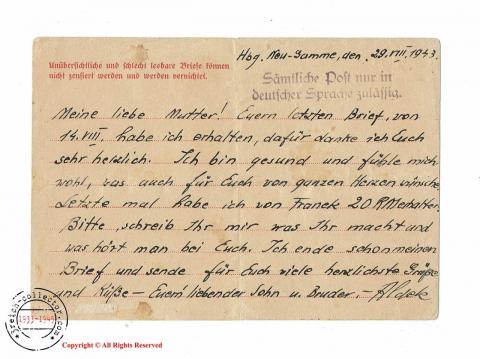 Hbg. Neu-Gamme, den. 29.VIII.1943.
Unübersichtliche und schlecht lesbare Briefe können
nicht zensiert werden und werden vernichtet.
Sämtliche Post nur in
deutscher Sprache zulässig.
Meine liebe Mutter! Euern letzten Brief, von
14.VIII. habe ich erhalten, dafür danke ich Euch
sehr herzlich. Ich bin gesund und fühle mich
wohl, was auch für Euch von ganzen Herzen wünsche
Letzte mal habe ich von Franek 20 RM erhalten.
Bitte, schreib Ihr mir was Ihr macht und
was hört man bei Euch. Ich ende schon meinen
Brief und sende für Euch viele herzlichste Grüße
und Küße – Euern liebender Sohn u. Bruder. –
3reich-collector.com
1933-1945
Copyright © All Rights Reserved